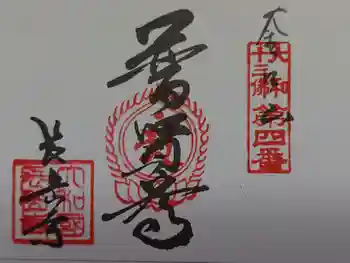 大和
十三佛
第四番
普賢尊
長岳寺
大和國